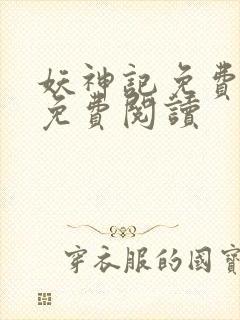 妖神記免費
免費閱讀
穿衣服的國寶